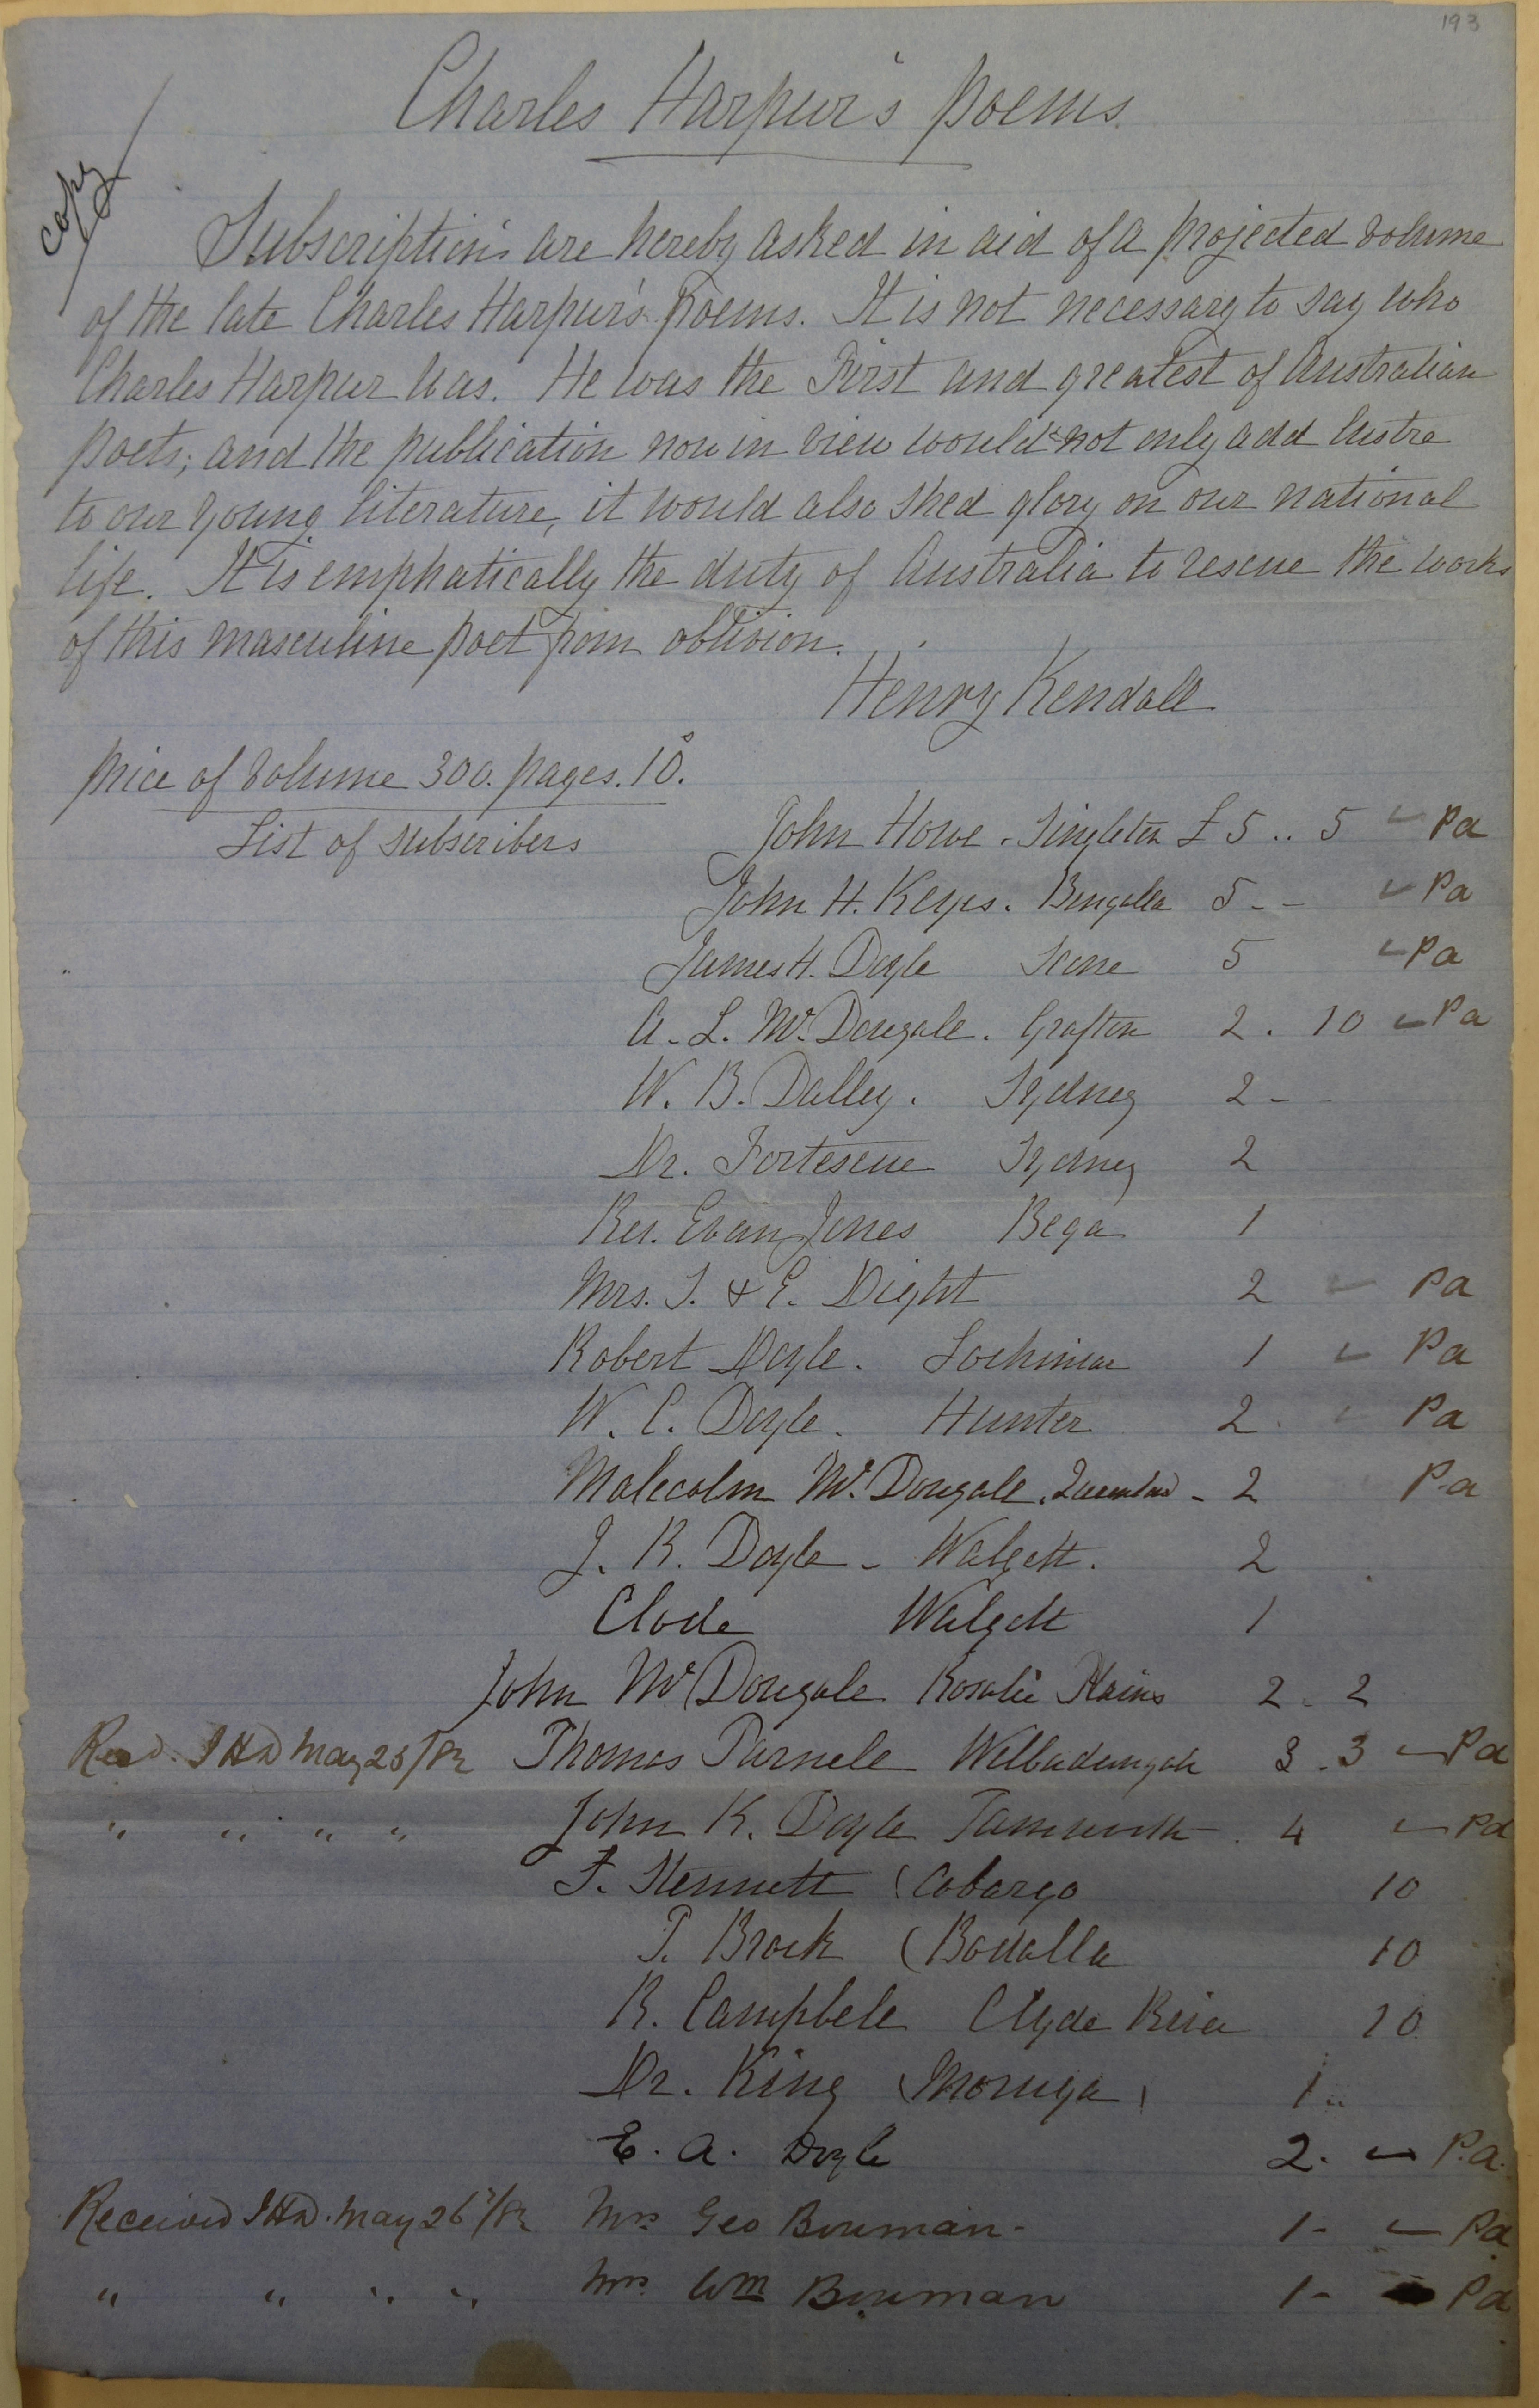 193
Charles Harpur's Poems.
copy
Subscriptions are hereby asked in aid of a projected volume
of the late Charles Harpur's Poems. It is not necessary to say who
Charles Harpur was. He was the First and greatest of Australian
Poets; and the publication now in view would not only add lustre
to our young literature, it would also shed glory on our national
life. It is emphatically the duty of Australia to rescue the works
of this masculine poet from oblivion.
Henry Kendall
Price of Volume 300. pages. 10.s
List of subscribers
John Howe. Singleton £ 5 .. 5 Pd
John H. Keys. Bengalla 5 - - Pd
James H. Doyle Scone 5 Pd
A. L. McDougall. Grafton 2 . 10 Pd
W. B. Dalley. Sydney 2 -
Dr. Fortescue Sydney 2
Rev. Evan Jones Bega 1
Mrs. S. & E. Dight 2 Pd
Robert Doyle. Lochinvar 1 Pd
W. C. Doyle. Hunter 2 Pd
Malecolm McDougall. - 2 Pd
J. R. Doyle - Walgett. 2
Clode Walgett 1
John McDougall Rosalie Plains 2 - 2
Recd. JHD May 26/82 Thomas Parnell 3 . 3 Pd
" " " " John K. Doyle Tamworth . 4 Pd
F. Stennett (Cobargo 10
T. Brock (Bodalla 10
R. Campbell Clyde River 10
Dr. King (Moruya) 1 ..
E. A. Doyle 2. Pd.
Received JHD. May 26/82 Mrs Geo Bowman - 1 - Pd
" " " " Mrs Wm Bowman 1 - Pd